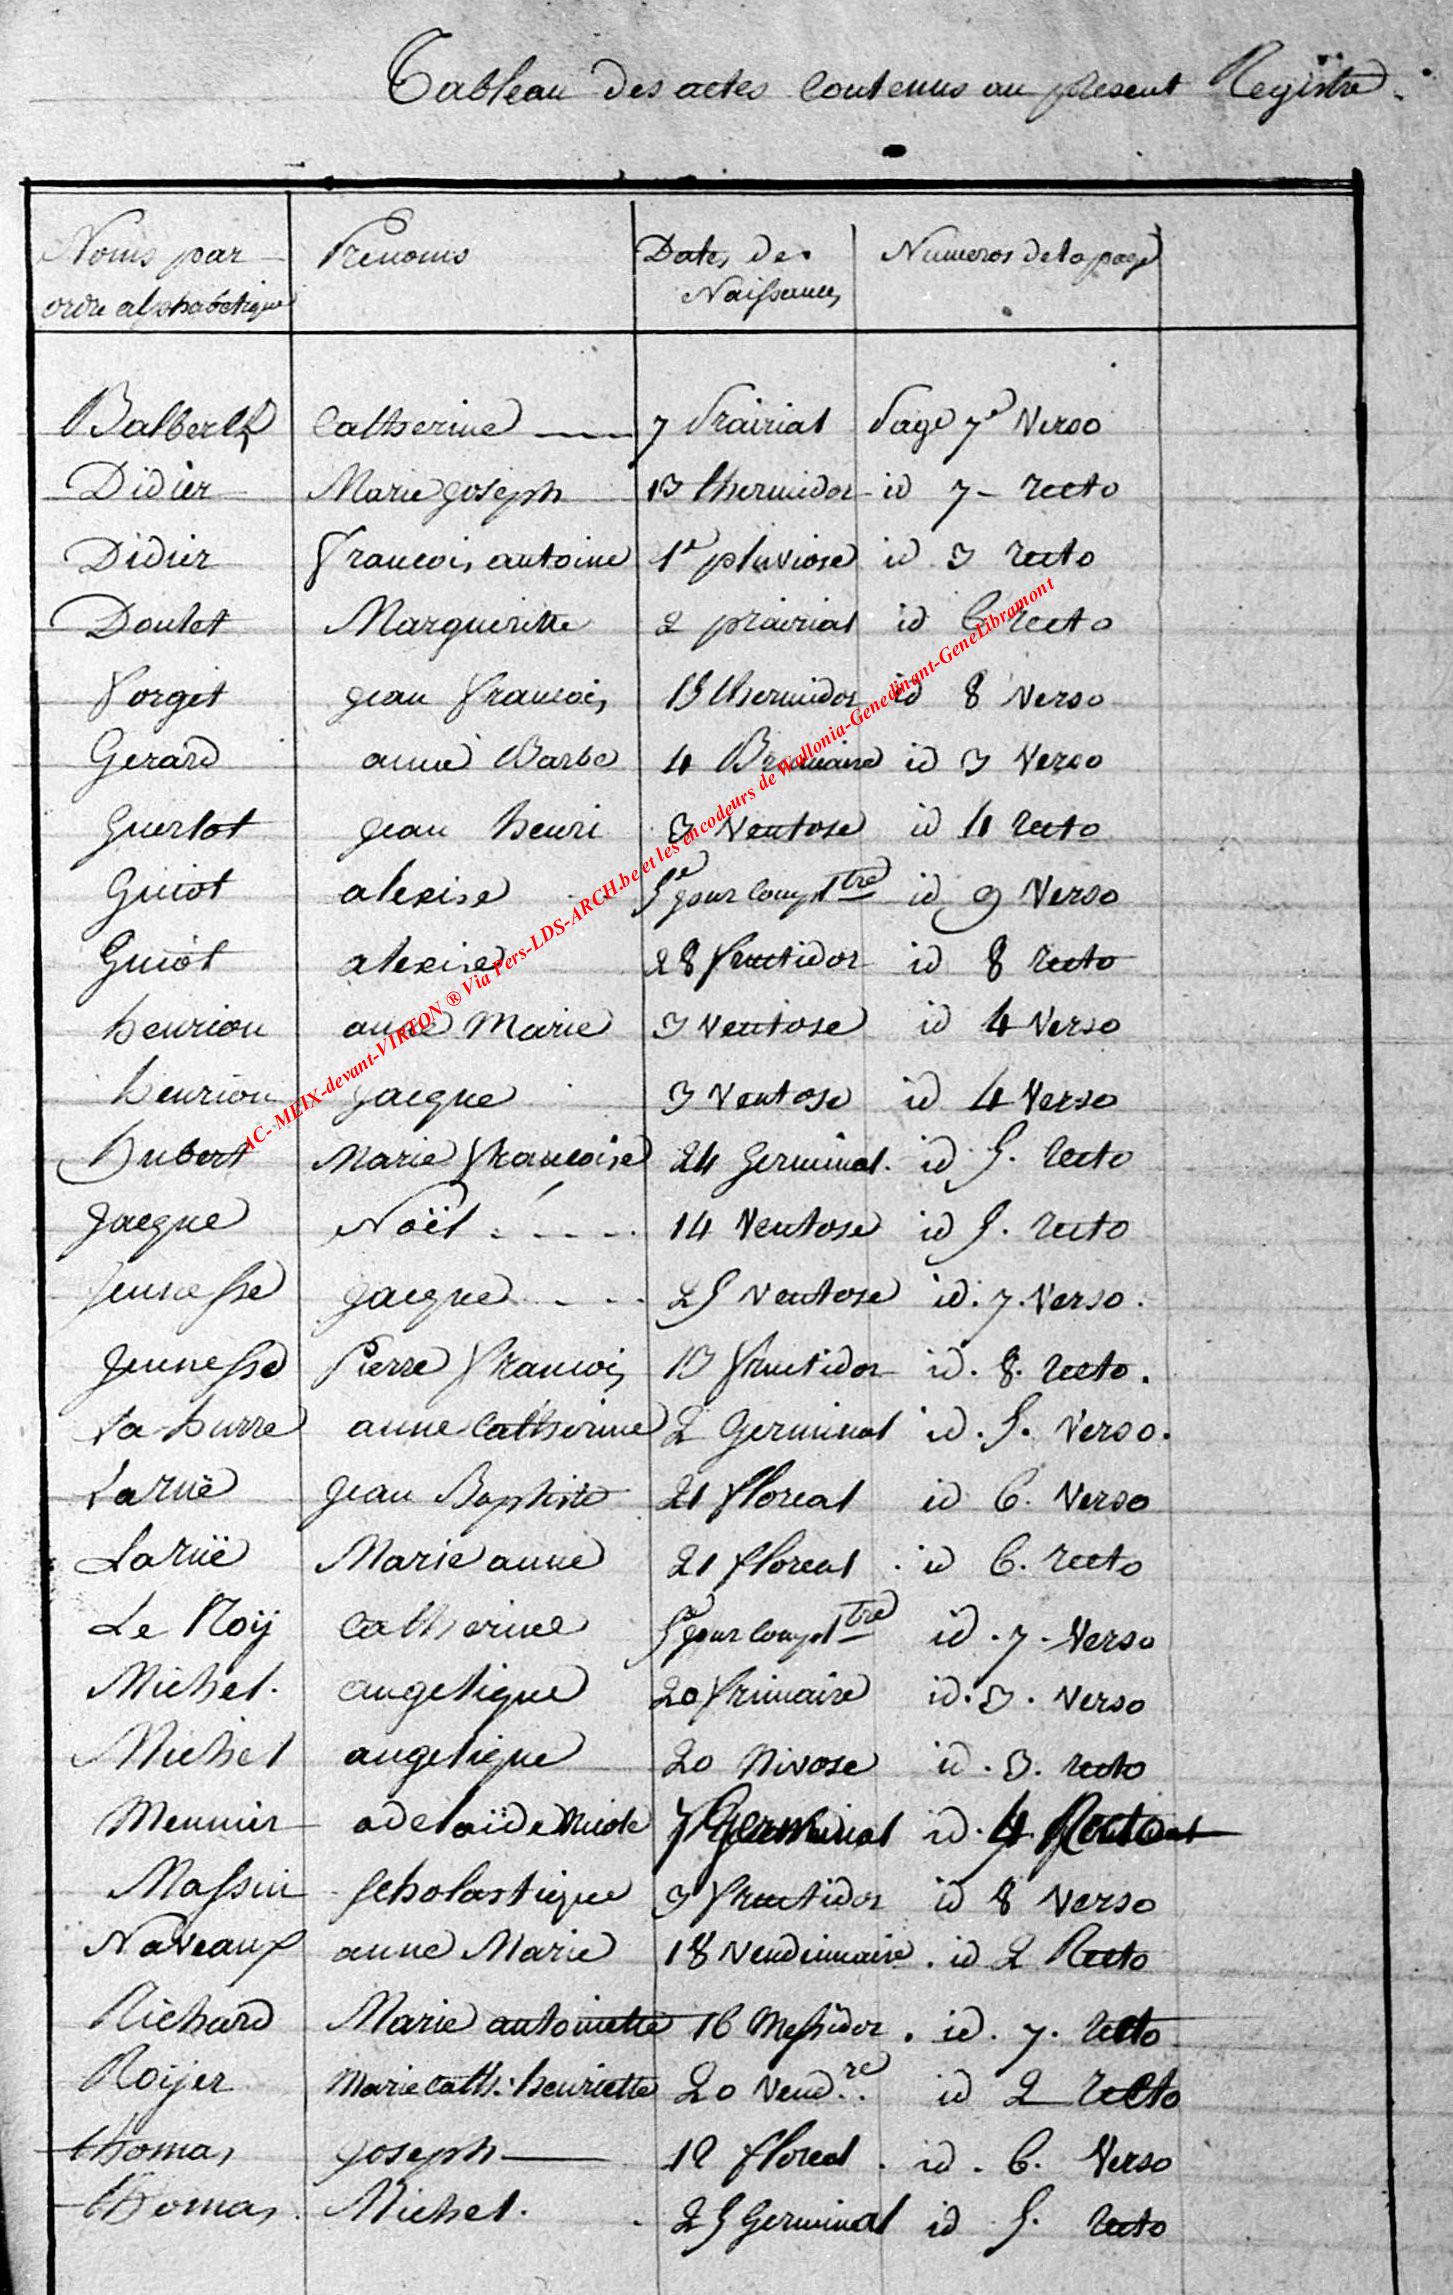 Tableau des actes contenus au present Registre.
Noms par ordre alphabetique Prenoms Dates des Naissances Numeros de la page
Catherine 7 Prairial Page 7e Verso
Didier Marie joseph 13 thermidor id 7 recto
Didier francois antoine 1er pluviose id 3 recto
Doulet Margueritte 2 prairial id 6 recto
forget jean francois 13 thermidor id 8 Verso
Gerard anne Barbe 4 Brumaire id 3 Verso
Guerlot jean henri 3 Ventose id 4 recto
Guiot alexise 5e jour compltre id 9 Verso
Guiot alexise 28 fructidor id 8 recto
henrion anne Marie 3 Ventose id 4 Verso
henrion jacque 3 Ventose id 4 Verso
hubert Marie francoise 24 germinal. id 5. recto
jacque Noël 14 Ventose id 5. recto
jeunesse jacque 25 Ventose id. 7. Verso.
jeunesse Pierre francois 13 fructidor id. 8. recto.
la hurre anne Catherine 2 Germinal id. 5. Verso.
Laruë jean Baptiste 21 floreal id 6. Verso
Laruë Marie anne 21 floreal id 6. recto
Le Roÿ Catherine 5e jour compltre id. 7. Verso
Michel. angelique 20 frimaire id. 3. Verso
Michel angelique 20 Nivose id. 3. recto
Meunier adelaïde Nicole 7 Germinal id. 4. Recto
Massin scholastique 3 fructidor id 8 Verso
Naveaux anne Marie 18 Vendemiaire. id 2 Recto
Richard Marie antoinette 16 Messidor. id. 7. recto
Roijer Marie Cath: henriette 20 Vend.re id 2 recto
thomas joseph 12 floreal. id. 6. Verso
thomas. Michel. 25 Germinal id 5. recto
AC- MEIX-devant-VIRTON ® Via Pers-LDS-ARCH.be et les encodeurs de Wallonia-Genedinant-GeneLibramont